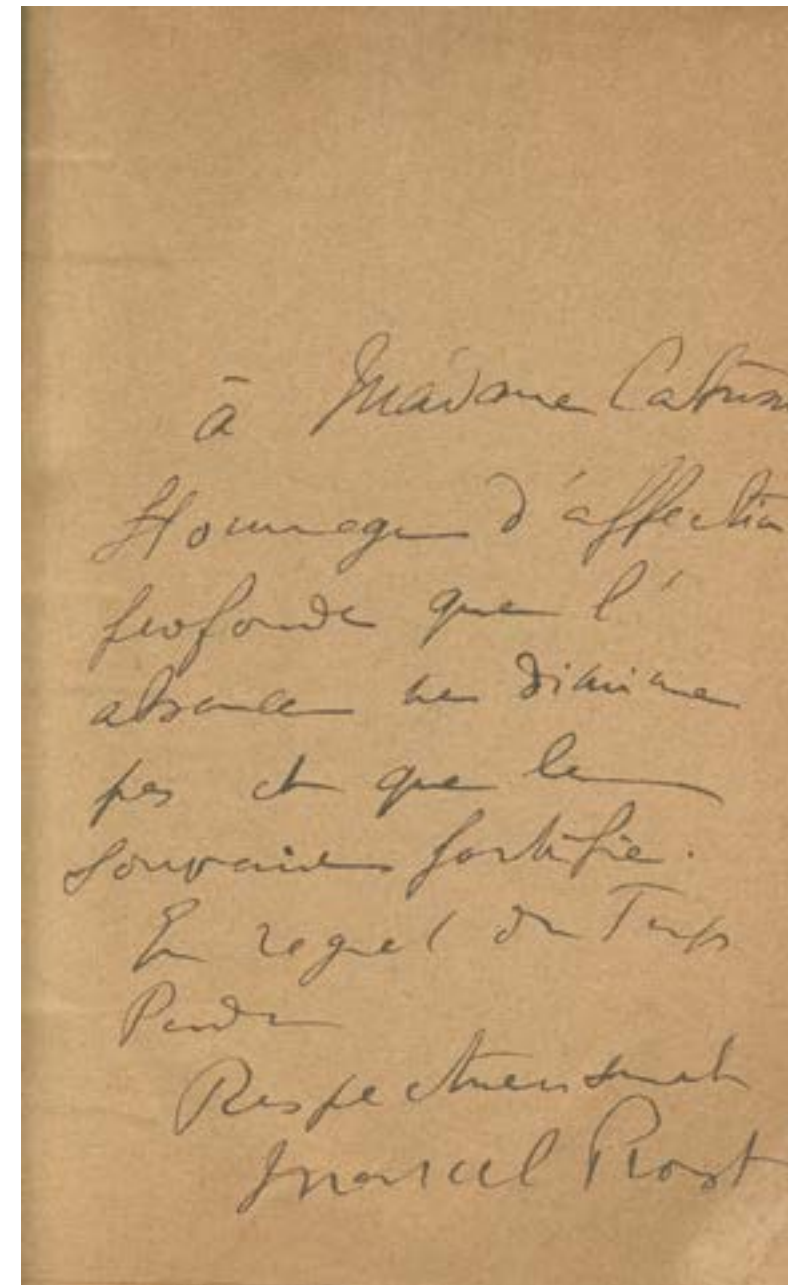 à Madame Catusse
Hommage d'affection
profonde que l'
absence ne diminue
pas et que le
souvenir fortifie.
En regret du Temps
Perdu
Respectueusement
Marcel Proust